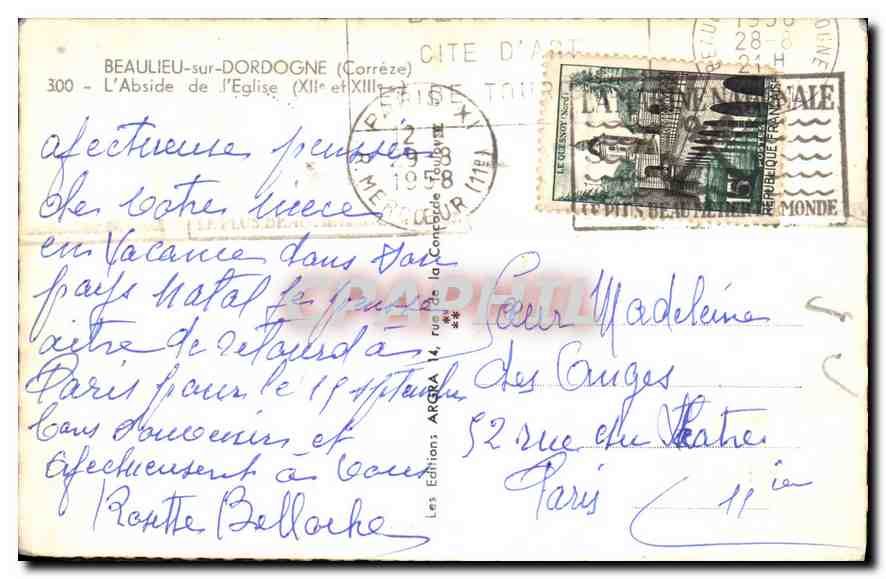 BEAULIEU-sur-DORDOGNE (Corrèze)
300 - L'Abside de l'Eglise (XIIe et XIIIe)
CITE D'ART
1958
28-8
21 H
PARIS XI
12 H
19-8
1958
R. MERCOEUR (11e)
LE QUESNOY (Nord)
15F
POSTES
REPUBLIQUE FRANÇAISE
LA NATIONALE
LE PLUS BEAU METIER DU MONDE
afectueuse pensée
des votres niece
en vacance dans son
pays natal je pense
aitre de retourd a
Paris pour le 15 septembre
bons souvenirs et
afectueusent à vous
Rosette Bellocke
Les Editions ARGRA 14, rue de la Concorde Toulouse
CPAPHIL
Sœur Madeleine
des Anges
52 rue du Théatre
Paris 11ier